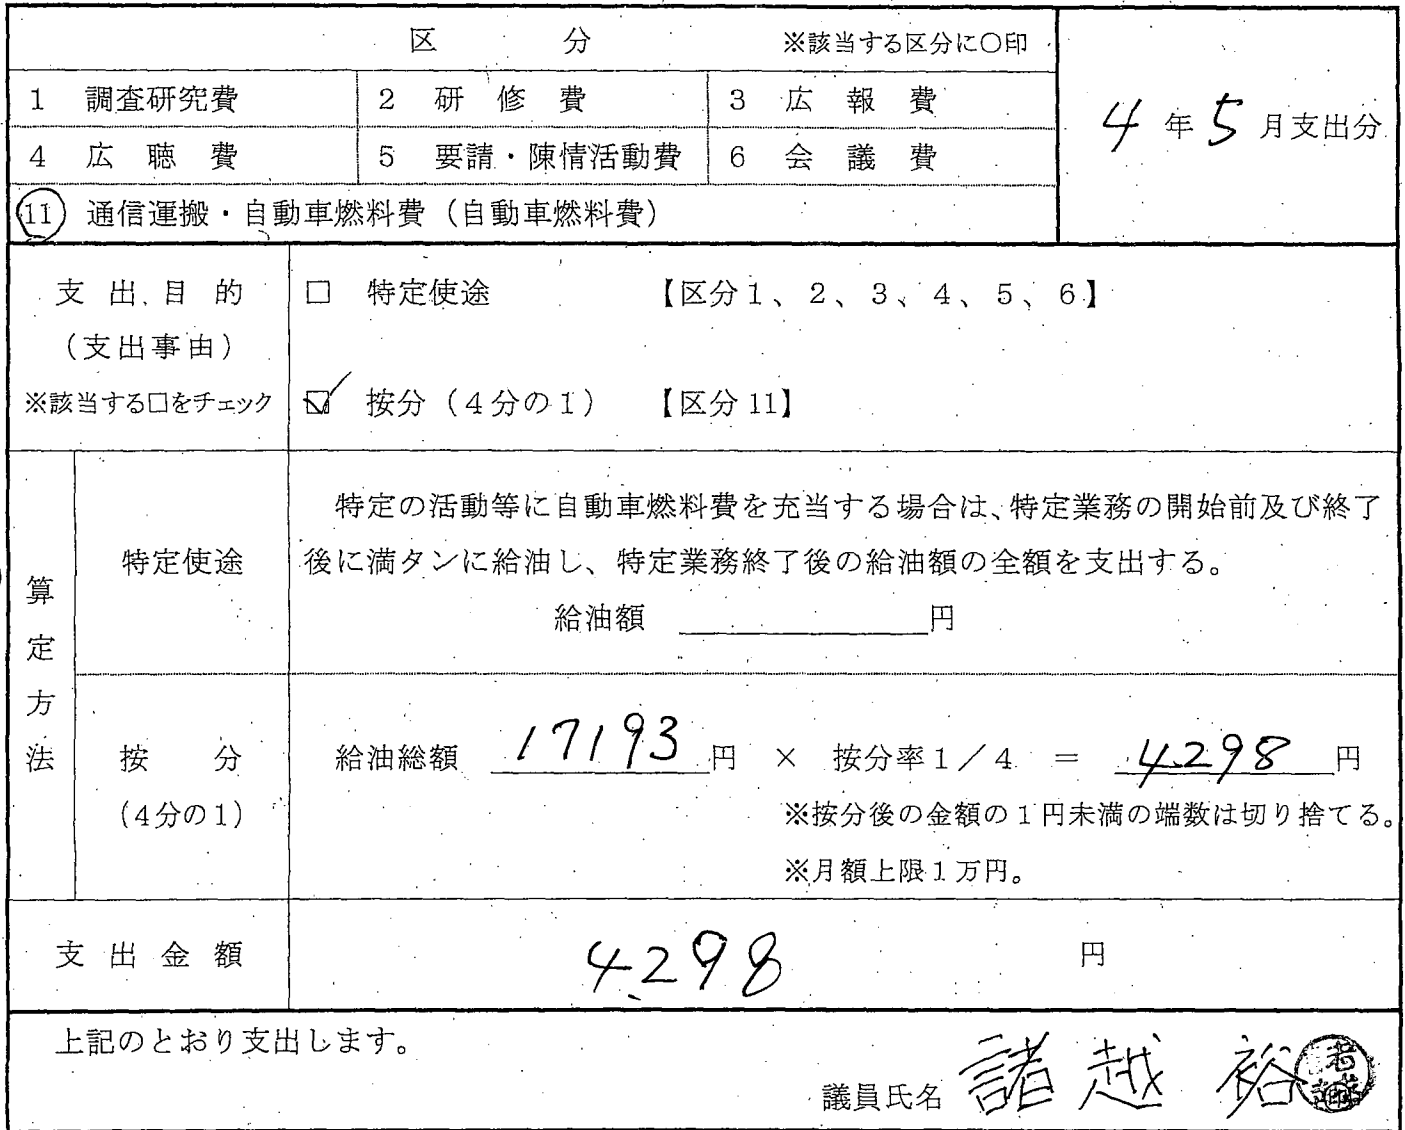 区 分 ※該当する区分に○印
4年5月支出分
1 調査研究費 2 研修費 3 広報費
4 広聴費 5 要請・陳情活動費 6 会議費
11 通信運搬・自動車燃料費（自動車燃料費）
支出目的
（支出事由）
※該当する□をチェック
□ 特定使途 【区分1、2、3、4、5、6】
☑ 按分（4分の1） 【区分11】
算定方法
特定使途
特定の活動等に自動車燃料費を充当する場合は、特定業務の開始前及び終了
後に満タンに給油し、特定業務終了後の給油額の全額を支出する。
給油額 円
按分
（4分の1）
給油総額 17193 円 × 按分率1／4 ＝ 4298 円
※按分後の金額の1円未満の端数は切り捨てる。
※月額上限1万円。
支出金額 4298 円
上記のとおり支出します。
議員氏名 諸越 裕